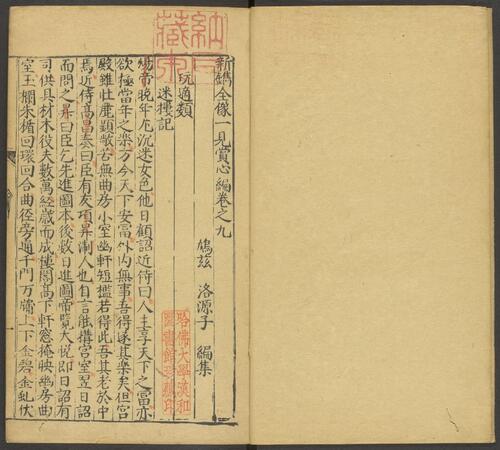 新鐫全像一見賞心編卷之九
鳩茲 洛源子 編集
玩適類
迷樓記
煬帝晚年尤沉迷女色他日顧謂近侍曰人主享天下之富亦
欲極當年之樂今天下安富外内無事吾得遂其樂矣但宮
殿雖壯麗顯敞苦無曲房小室幽軒短檻若得此吾其老於中
焉近侍高昌奏曰臣有友項昇淛人也自言能搆宮室翌日詔
而問之昇曰臣乞先進圖本後数日進圖帝覽大悦即日詔有
司供具材木役夫數萬經歲而成樓閣高下軒窓掩映幽房曲
室玉欄朱楯回環回合曲徑旁通千門万牖上下金碧金虬伏
哈佛大學漢和圖書館珍藏印